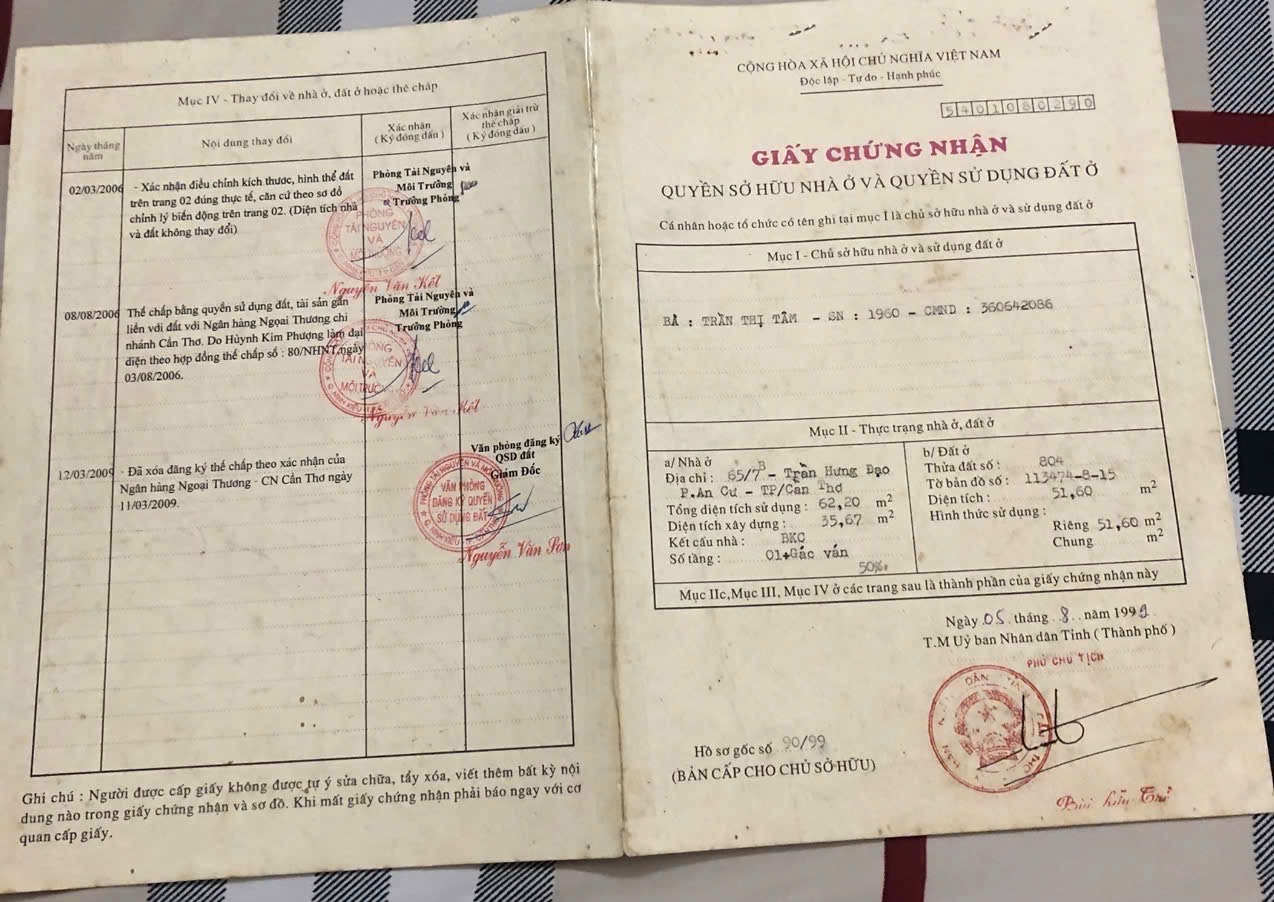 Mục IV - Thay đổi về nhà ở, đất ở hoặc thế chấp
Ngày tháng năm
Nội dung thay đổi
Xác nhận
( Ký đóng dấu )
Xác nhận giải trừ
thế chấp
( Ký đóng dấu )
02/03/2006
- Xác nhận điều chỉnh kích thươc, hình thể đất
trên trang 02 đúng thực tế, căn cứ theo sơ đồ
chỉnh lý biến động trên trang 02. (Diện tích nhà
và đất không thay đổi)
Phòng Tài Nguyên và
Môi Trường
Trưởng Phòng
PHÒNG
TÀI NGUYÊN
VÀ
MÔI TRƯỜNG
Nguyễn Văn Kết
08/08/2006
Thế chấp bằng quyền sử dụng đất, tài sản gắn
liền với đất với Ngân hàng Ngoại Thương chi
nhánh Cần Thơ. Do Huỳnh Kim Phượng làm đại
diện theo hợp đồng thế chấp số : 80/NHNT ngày
03/08/2006.
Phòng Tài Nguyên và
Môi Trường
Trưởng Phòng
PHÒNG
TÀI NGUYÊN
VÀ
MÔI TRƯỜNG
Nguyễn Văn Kết
12/03/2009
- Đã xóa đăng ký thế chấp theo xác nhận của
Ngân hàng Ngoại Thương - CN Cần Thơ ngày
11/03/2009.
Văn phòng đăng ký
QSD đất
Giám Đốc
PHÒNG TÀI NGUYÊN VÀ MÔI TRƯỜNG
VĂN PHÒNG
ĐĂNG KÝ QUYỀN
SỬ DỤNG ĐẤT
Nguyễn Văn Sơn
Ghi chú : Người được cấp giấy không được tự ý sửa chữa, tẩy xóa, viết thêm bất kỳ nội
dung nào trong giấy chứng nhận và sơ đồ. Khi mất giấy chứng nhận phải báo ngay với cơ
quan cấp giấy.
CỘNG HÒA XÃ HỘI CHỦ NGHĨA VIỆT NAM
Độc lập - Tự do - Hạnh phúc
5401080290
GIẤY CHỨNG NHẬN
QUYỀN SỞ HỮU NHÀ Ở VÀ QUYỀN SỬ DỤNG ĐẤT Ở
Cá nhân hoặc tổ chức có tên ghi tại mục I là chủ sở hữu nhà ở và sử dụng đất ở
Mục I - Chủ sở hữu nhà ở và sử dụng đất ở
BÀ : TRẦN THỊ TÂM - SN : 1960 - CMND : 360642086
Mục II - Thực trạng nhà ở, đất ở
a/ Nhà ở
Địa chỉ : 65/7B - Trần Hưng Đạo
P.An Cư - TP/Cần Thơ
Tổng diện tích sử dụng : 62,20 m2
Diện tích xây dựng : 35,67 m2
Kết cấu nhà : BKC
Số tầng : 01+Gác ván
50%
b/ Đất ở
Thửa đất số : 804
Tờ bản đồ số : 113474-8-15
Diện tích : 51,60 m2
Hình thức sử dụng :
Riêng 51,60 m2
Chung m2
Mục IIc,Mục III, Mục IV ở các trang sau là thành phần của giấy chứng nhận này
Ngày 05 tháng 8 năm 1999
T.M Uỷ ban Nhân dân Tỉnh ( Thành phố )
PHÓ CHỦ TỊCH
Hồ sơ gốc số 90/99
(BẢN CẤP CHO CHỦ SỞ HỮU)
Bùi hữu Trí